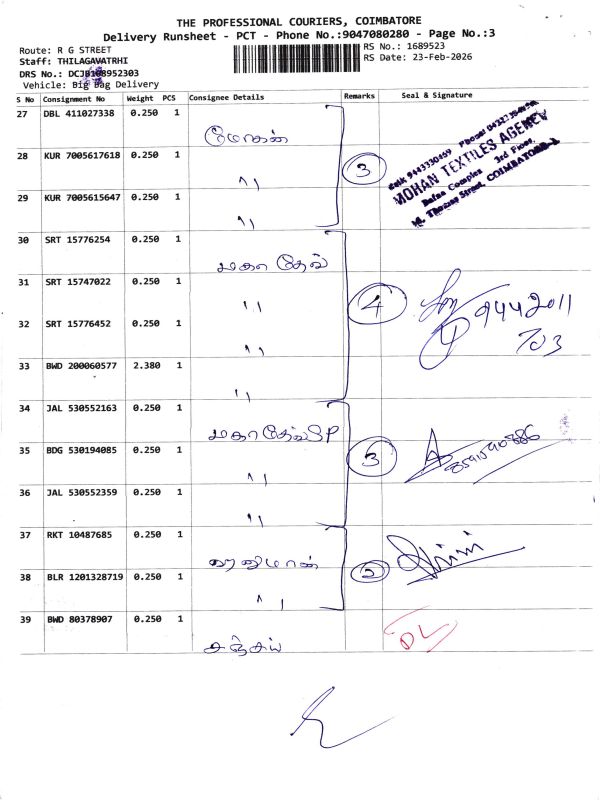 THE PROFESSIONAL COURIERS, COIMBATORE
Delivery Runsheet - PCT - Phone No.:9047080280 - Page No.:3
Route: R G STREET
RS No.: 1689523
Staff: THILAGAVATRHI
RS Date: 23-Feb-2026
DRS No.: DCJB108952303
Vehicle: Big Bag Delivery
S No Consignment No Weight PCS Consignee Details Remarks Seal & Signature
27 DBL 411027338 0.250 1 மோகன்
28 KUR 7005617618 0.250 1 " 3
29 KUR 7005615647 0.250 1 "
MOHAN TEXTILES AGENCY
Complex 3rd Floor,
Street, COIMBATORE-1
30 SRT 15776254 0.250 1 மகாதேவ்
31 SRT 15747022 0.250 1 " 4 9442011
32 SRT 15776452 0.250 1 " 703
33 BWD 200060577 2.380 1 "
34 JAL 530552163 0.250 1 மகாதேவ் SP
35 BDG 530194085 0.250 1 " 3
36 JAL 530552359 0.250 1 "
37 RKT 10487685 0.250 1 ஹனுமான்
38 BLR 1201328719 0.250 1 " 2
39 BWD 80378907 0.250 1 சஞ்சய் DL